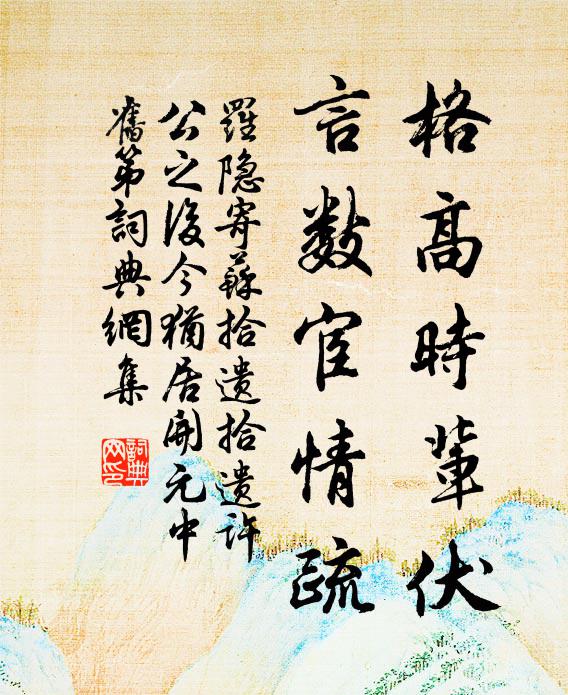 格高時輩伏
言數宦情疏
羅隐寄蘇拾遗拾遗許
公之後今猶居開元中
舊第詞典網集
詞典网印